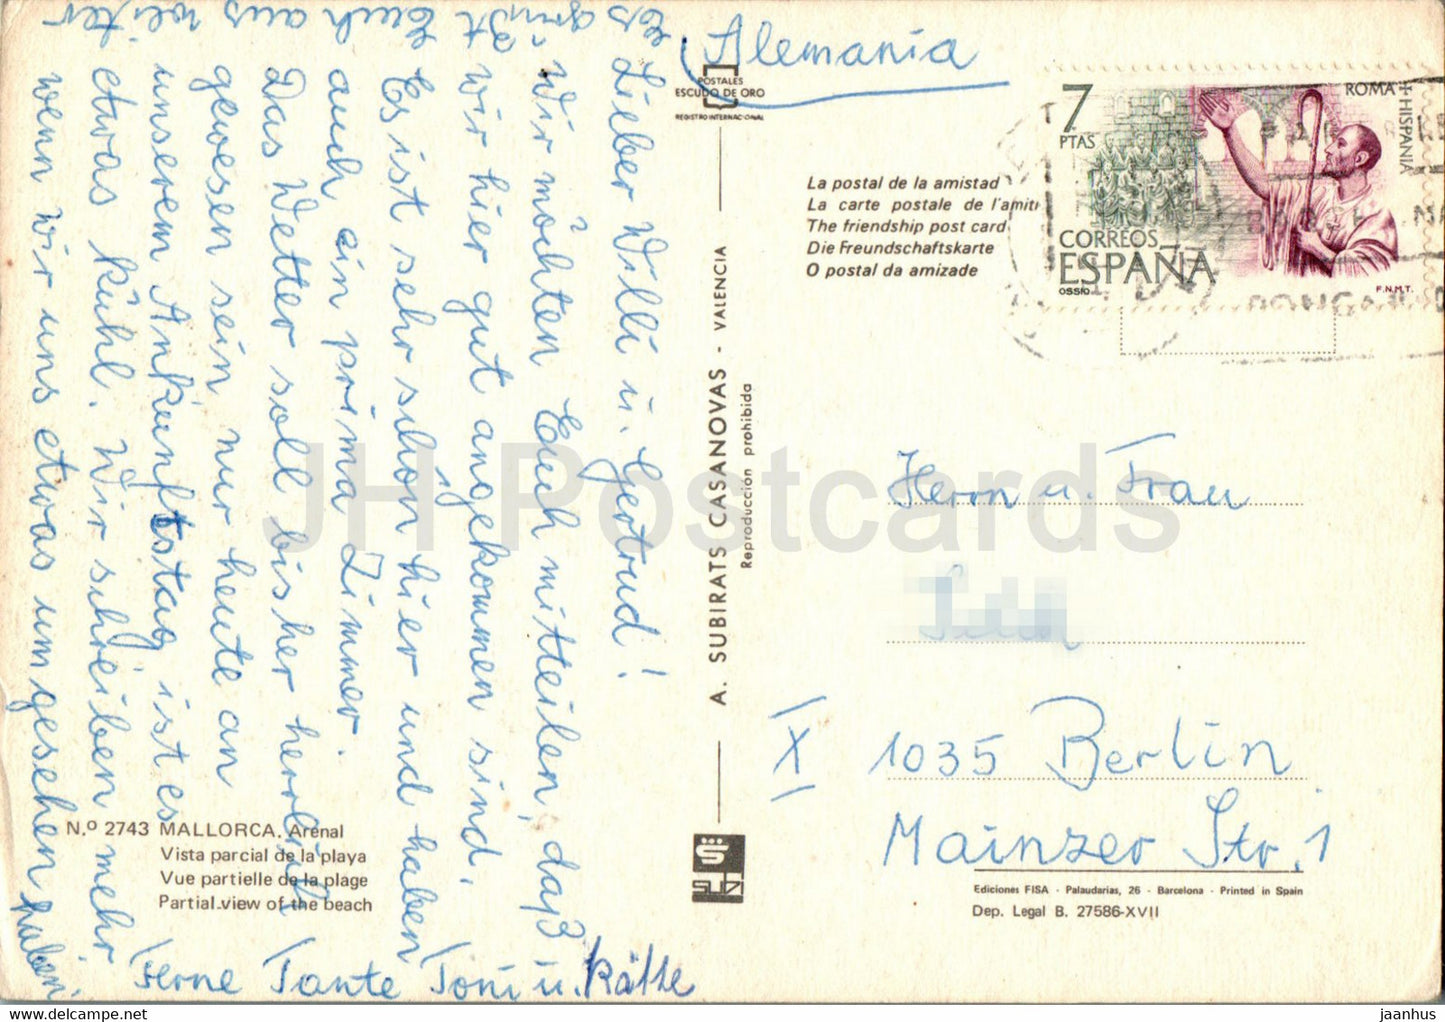 Alemania
POSTALES
ESCUDO DE ORO
REGISTRO INTERNACIONAL
La postal de la amistad
La carte postale de l'amiti
The friendship post card
Die Freundschaftskarte
O postal da amizade
7
PTAS
ROMA + HISPANIA
CORREOS
ESPAÑA
OSSIO
F.N.M.T.
Lieber Willi u. Gertrud!
Wir möchten Euch mitteilen, daß
wir hier gut angekommen sind.
Es ist sehr schön hier und haben
auch ein prima Zimmer.
Das Wetter soll bisher herrlich
gewesen sein nur heute an
unserem Ankunftstag ist es
etwas kühl. Wir schreiben mehr
wenn wir uns etwas umgesehen
haben.
Es grüßt Euch aus weiter
Ferne Tante Toni u. Käthe
A. SUBIRATS CASANOVAS - VALENCIA
Reproducción prohibida
Herrn u. Frau
X
1035 Berlin
Mainzer Str. 1
N.º 2743 MALLORCA. Arenal
Vista parcial de la playa
Vue partielle de la plage
Partial view of the beach
SUBI
Ediciones FISA - Palaudarias, 26 - Barcelona - Printed in Spain
Dep. Legal B. 27586-XVII
JH Postcards
jaanhus